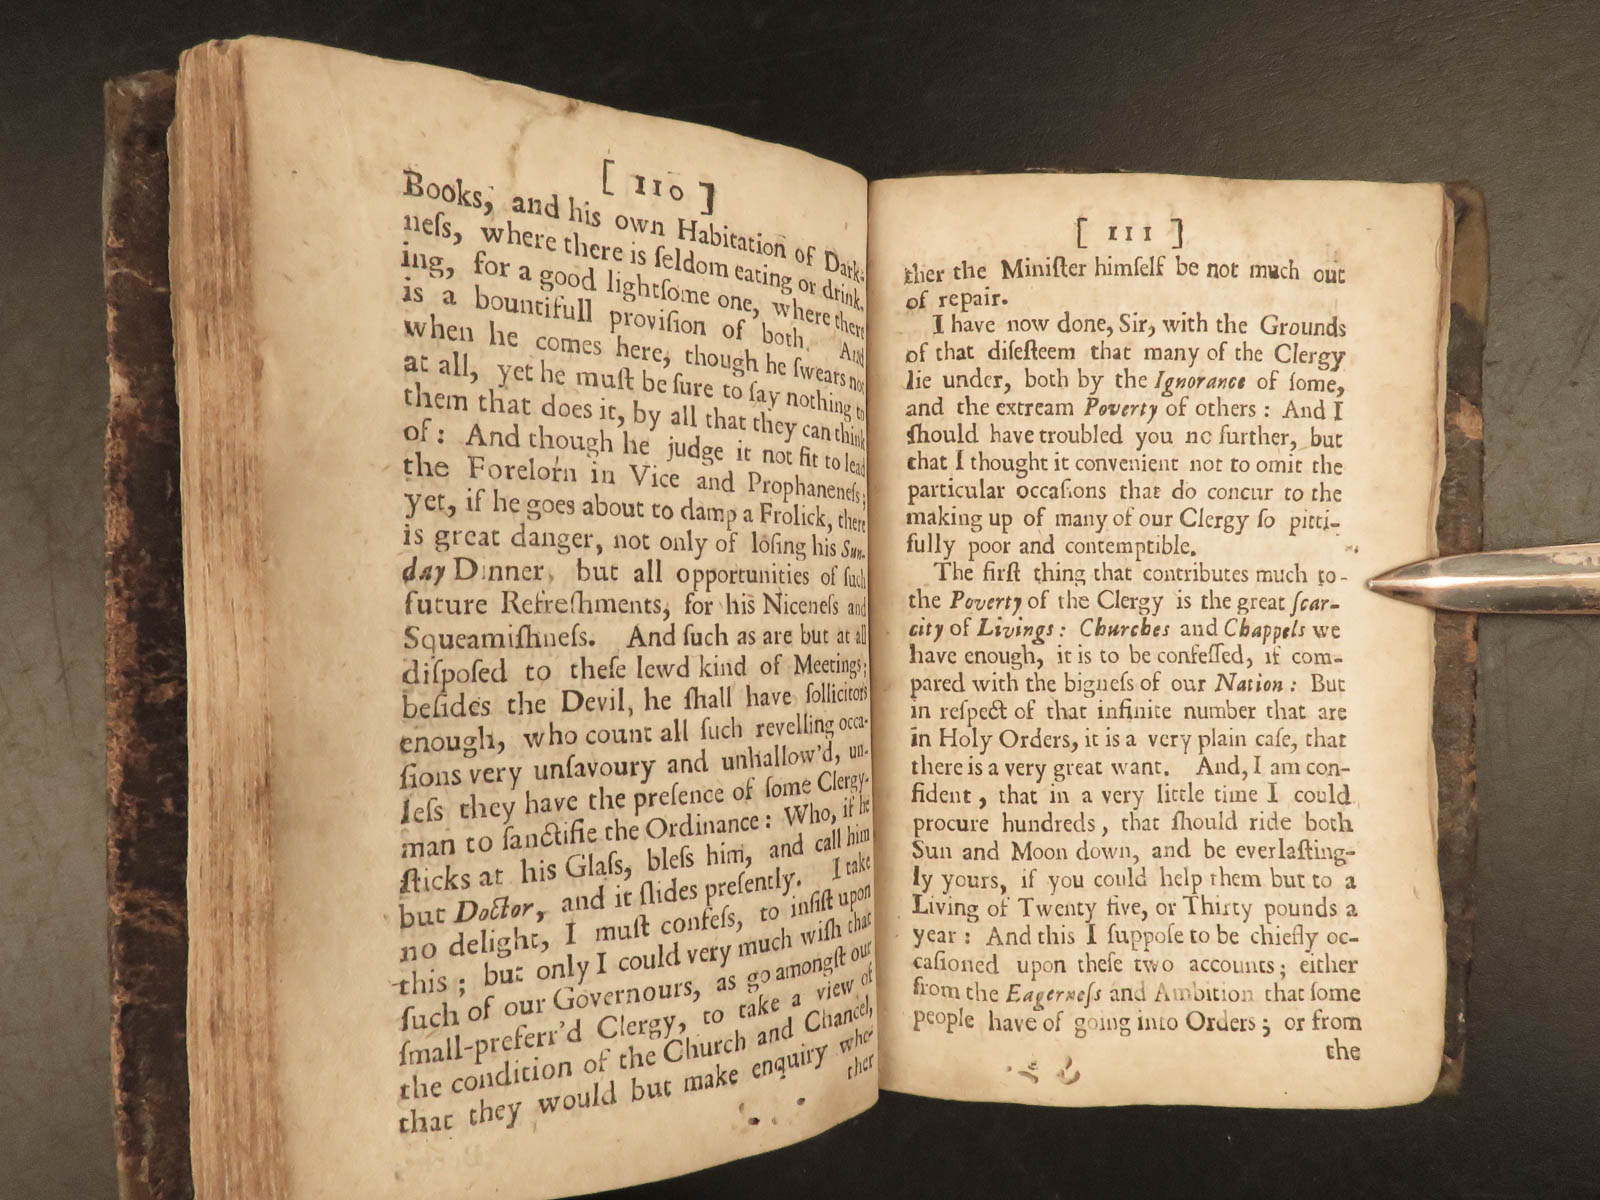 [ 110 ]
Books, and his own Habitation of Dark-
neſs, where there is ſeldom eating or drink-
ing, for a good lightſome one, where there
is a bountifull proviſion of both. And
when he comes here, though he ſwears not
at all, yet he muſt be ſure to ſay nothing to
them that does it, by all that they can think
of: And though he judge it not fit to lead
the Forelorn in Vice and Prophaneneſs;
yet, if he goes about to damp a Frolick, there
is great danger, not only of loſing his Sun-
day Dinner, but all opportunities of ſuch
future Refreſhments, for his Niceneſs and
Squeamiſhneſs. And ſuch as are but at all
diſpoſed to theſe lewd kind of Meetings;
beſides the Devil, he ſhall have ſollicitors
enough, who count all ſuch revelling occa-
ſions very unſavoury and unhallow'd, un-
leſs they have the preſence of ſome Clergy-
man to ſanctifie the Ordinance: Who, if he
ſticks at his Glaſs, bleſs him, and call him
but Doctor, and it ſlides preſently. I take
no delight, I muſt confeſs, to inſiſt upon
this; but only I could very much wiſh that
ſuch of our Governours, as go amongſt our
ſmall-preferr'd Clergy, to take a view of
the condition of the Church and Chancel,
that they would but make enquiry whe-
ther
[ 111 ]
ther the Miniſter himſelf be not much out
of repair.
I have now done, Sir, with the Grounds
of that diſeſteem that many of the Clergy
lie under, both by the Ignorance of ſome,
and the extream Poverty of others: And I
ſhould have troubled you no further, but
that I thought it convenient not to omit the
particular occaſions that do concur to the
making up of many of our Clergy ſo pitti-
fully poor and contemptible.
The firſt thing that contributes much to-
the Poverty of the Clergy is the great ſcar-
city of Livings: Churches and Chappels we
have enough, it is to be confeſſed, if com-
pared with the bigneſs of our Nation: But
in reſpect of that infinite number that are
in Holy Orders, it is a very plain caſe, that
there is a very great want. And, I am con-
fident, that in a very little time I could
procure hundreds, that ſhould ride both
Sun and Moon down, and be everlaſting-
ly yours, if you could help them but to a
Living of Twenty five, or Thirty pounds a
year: And this I ſuppoſe to be chiefly oc-
caſioned upon theſe two accounts; either
from the Eagerneſs and Ambition that ſome
people have of going into Orders; or from
the